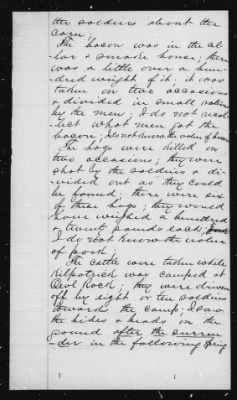 the soldiers about the
corn.
The bacon was in the cel-
lar & smoke house; there
was a little over a hun-
dred weight of it. it was
taken on two occasions
& divided in small rations
by the men; I do not recol-
lect what men got the
bacon; I do not know the value of bacon
The hogs were killed on
two occasions; they were
shot by the soldiers & di-
vided out as they could
be found; there were six
of these hogs; they would
have weighed a hundred
& twenty pounds each;
I do not know the value
of pork;
The cattle were taken while
Kilpatrick was camped at
Owl Rock; they were driven
off by eight or ten soldiers
towards the camp; I saw
the hides & heads on the
ground after the surren-
-der in the following Spring